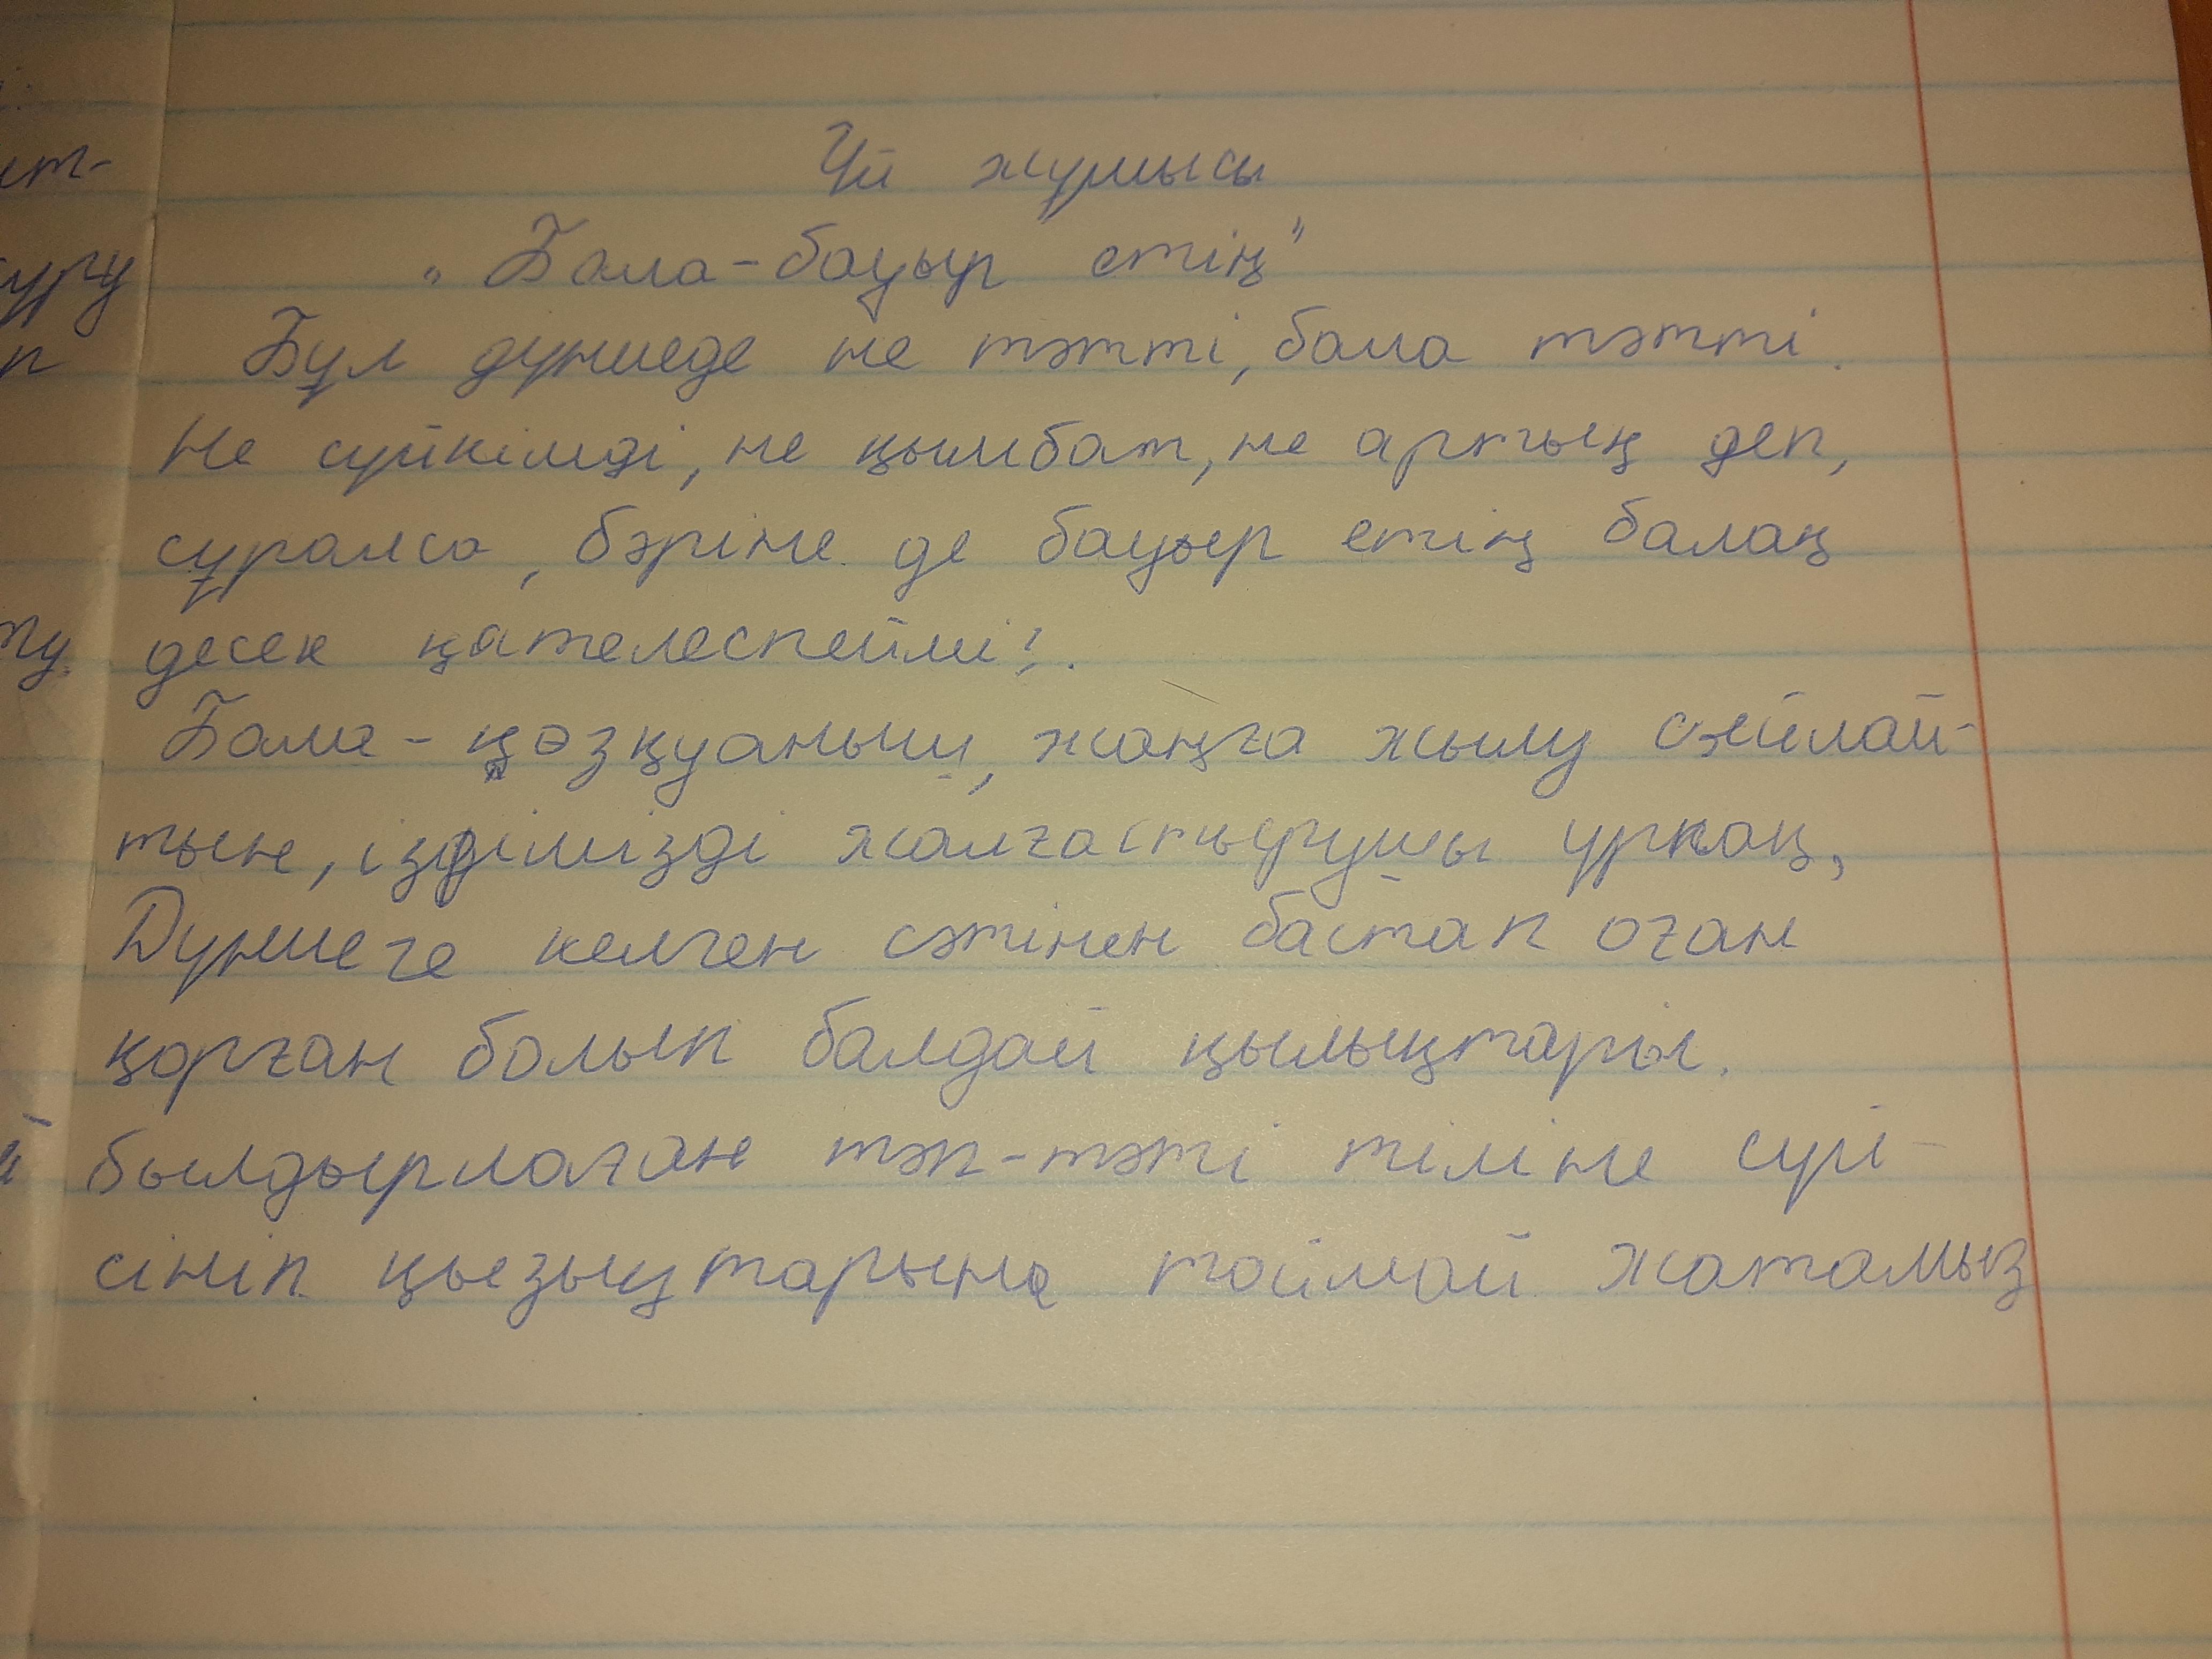 Үй жұмысы
"Бала-бауыр етің"
Бұл дүниеде не тәтті, бала тәтті.
Не сүйкімді, не қымбат, не артық деп,
сұралса, бәріне де бауыр етің балаң
десек қателеспейміз.
Бала - көзқуаныш, жанға жылу сыйлай-
тын, ізімізді жалғастырушы ұрпақ,
Дүниеге келген сәтінен бастап оған
қорған болып балдай қылықтары.
былдырлаған тәп-тәті тіліне сүй-
сініп қызықтарына тоймай жатамыз